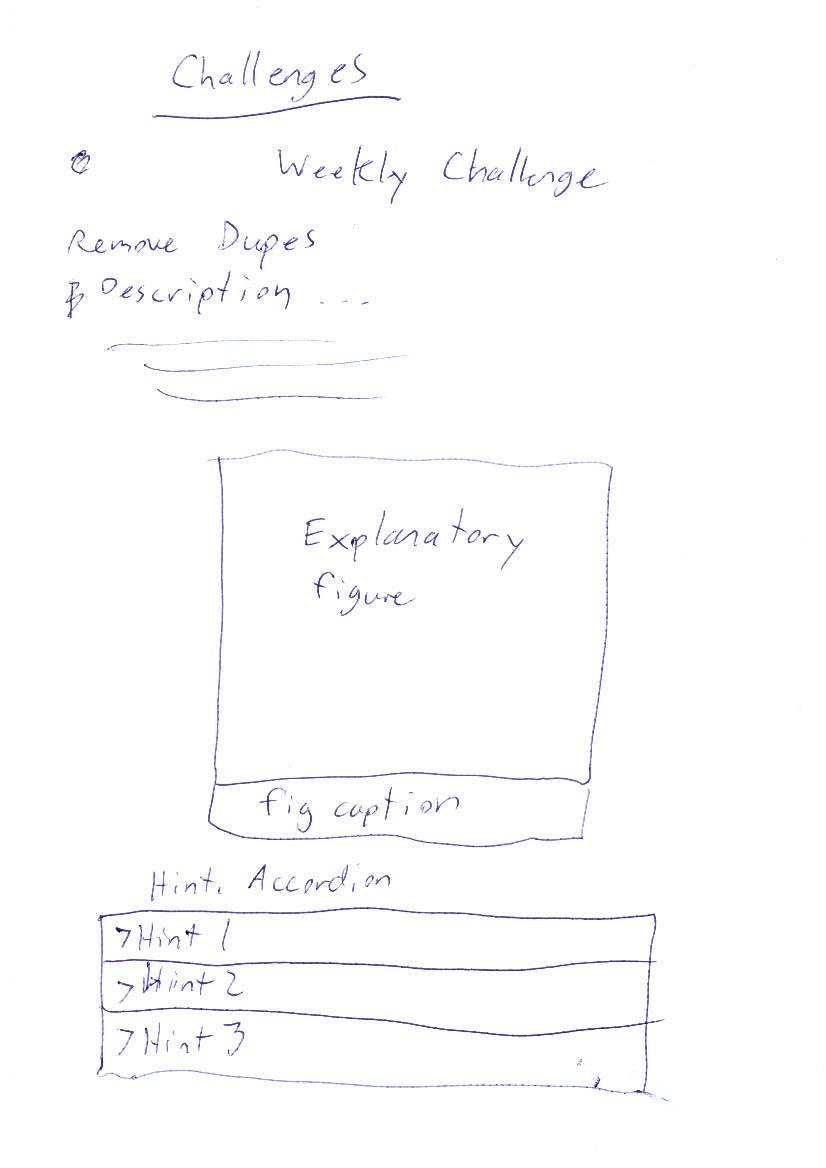 Challenges
Weekly Challenge
Remove Dupes
Description ...
Explanatory
figure
fig caption
Hint. Accordion
>Hint 1
>Hint 2
>Hint 3